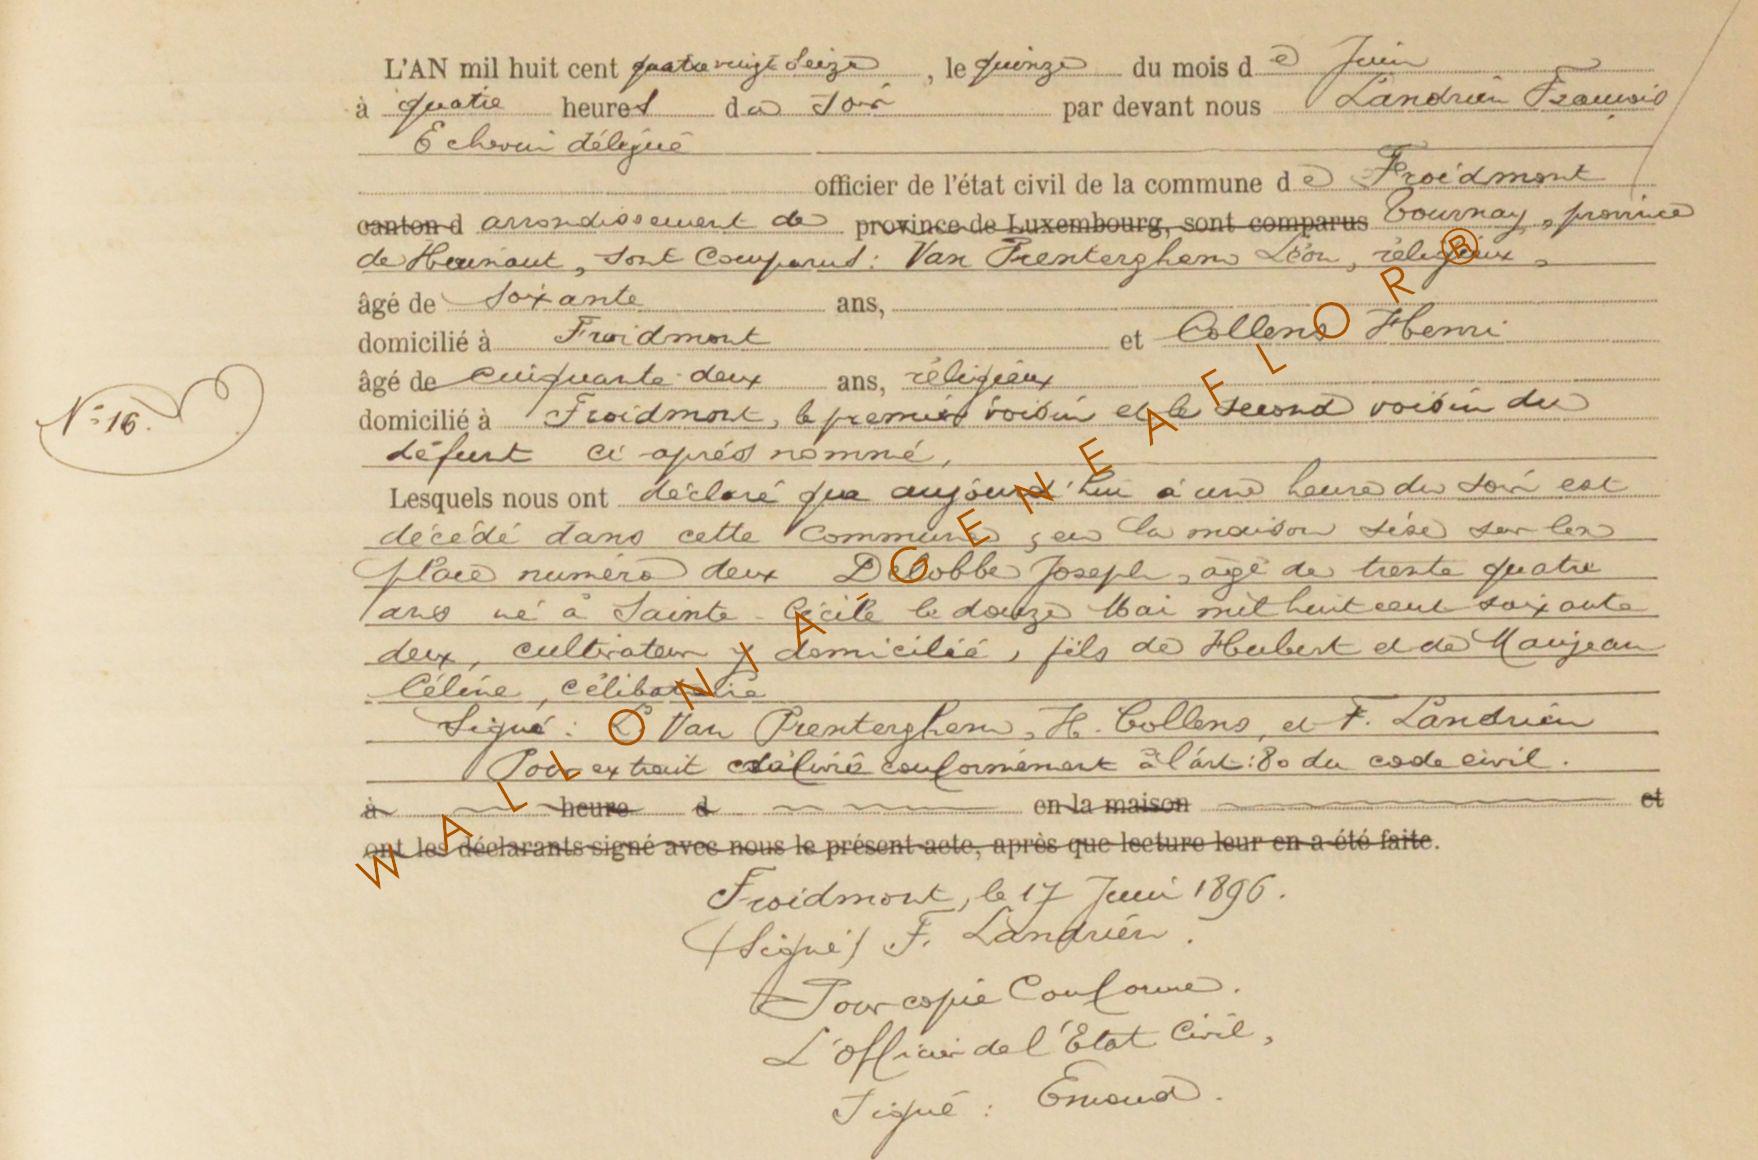 L'AN mil huit cent quatre vingt seize, le quinze du mois de Juin
à quatre heures du soir par devant nous Landrien François
Echevin délégué
officier de l'état civil de la commune de Froidmont
canton d arrondissement de province de Luxembourg, sont comparus Tournay, province
de Hainaut, sont comparus : Van Prenterghem Léon, réligieux,
âgé de soixante ans,
domicilié à Froidmont et Collens Henri
N° 16.
âgé de cinquante deux ans, réligieux
domicilié à Froidmont, le premier voisin et le second voisin du
défunt ci après nommé,
Lesquels nous ont déclaré que aujourd'hui à une heure du soir est
décédé dans cette commune, en la maison sise sur la
place numéro deux Delobbe Joseph, âgé de trente quatre
ans né à Sainte-Cécile le douze Mai mil huit cent soixante
deux, cultivateur y domicilié, fils de Hubert et de Maujean
Céline, célibataire
Signé : L. Van Prenterghem, H. Collens, et F. Landrien
Pour extrait délivré conformément à l'art : 80 du code civil.
à heure d en la maison et
ont les déclarants signé avec nous le présent acte, après que lecture leur en a été faite.
Froidmont, le 17 Juin 1896.
(Signé) F. Landrien.
Pour copie Conforme.
L'Officier de l'Etat Civil,
Signé : Emond.
WALLONIA-GENEAFLOR®